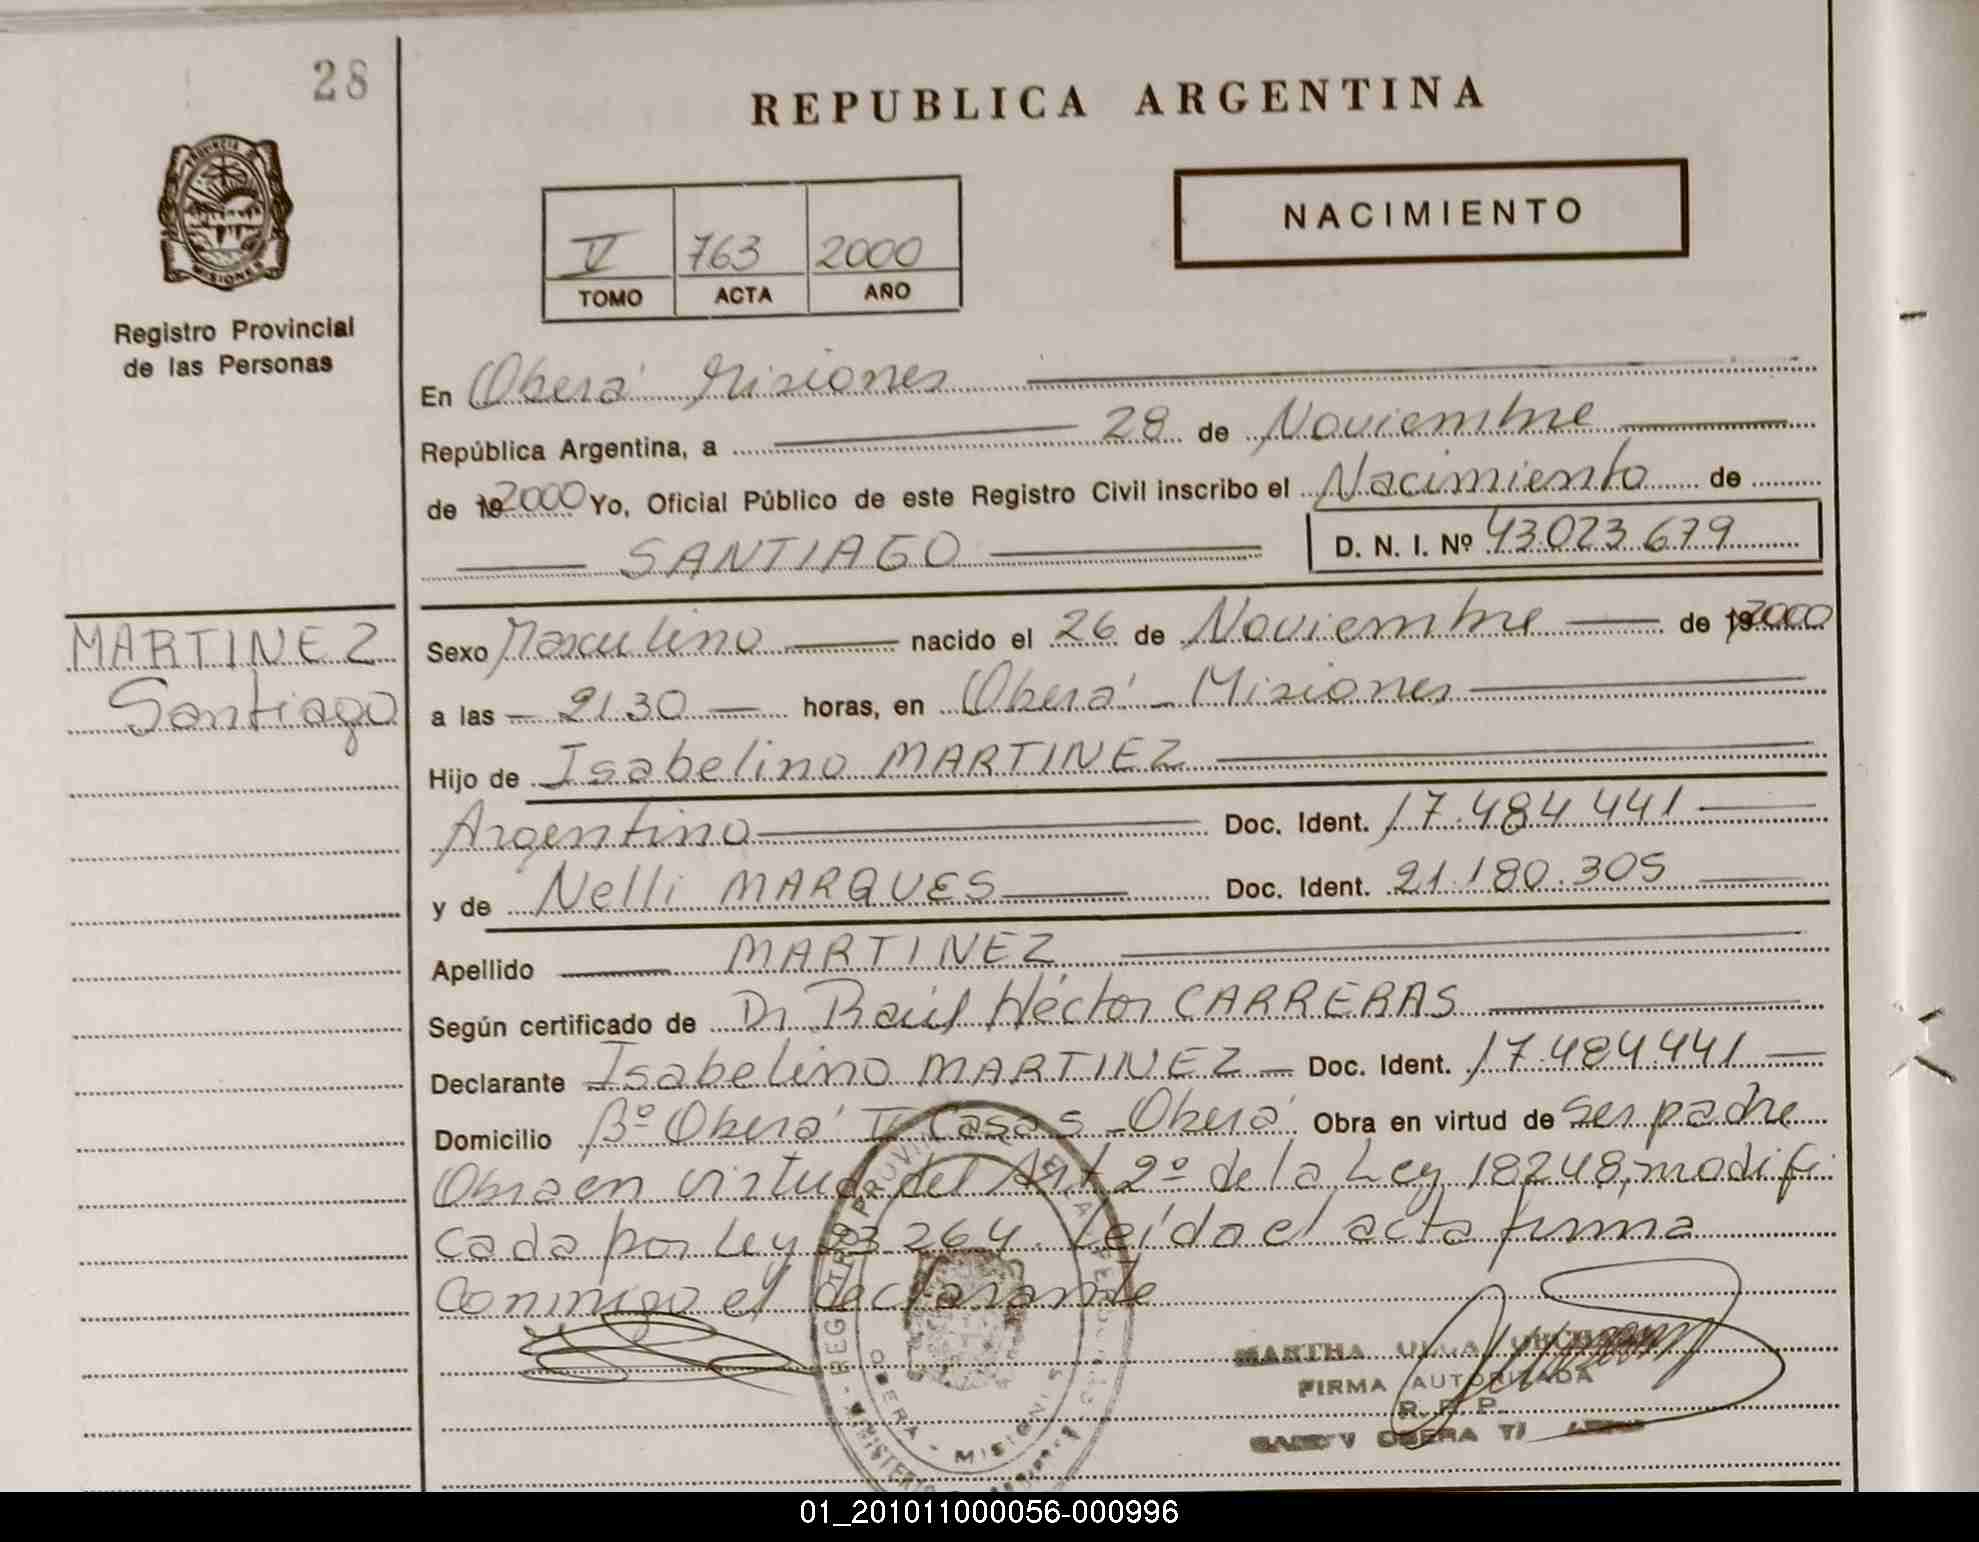 28
REPUBLICA ARGENTINA
PROVINCIA DE
MISIONES
Registro Provincial
de las Personas
V 763 2000
TOMO ACTA AÑO
NACIMIENTO
En Oberá Misiones
República Argentina, a 28 de Noviembre
de 19 2000 Yo, Oficial Público de este Registro Civil inscribo el Nacimiento de
SANTIAGO D. N. I. Nº 43.023.679
MARTINEZ
Santiago
Sexo Masculino nacido el 26 de Noviembre de 19 2000
a las 21.30 horas, en Oberá - Misiones
Hijo de Isabelino MARTINEZ
Argentino Doc. Ident. 17.484.441
y de Nelli MARQUES Doc. Ident. 21.180.305
Apellido MARTINEZ
Según certificado de Dr. Raúl Héctor CARRERAS
Declarante Isabelino MARTINEZ Doc. Ident. 17.484.441
Domicilio Bº Oberá II Casa 5 - Oberá Obra en virtud de ser padre
Obra en virtud del Art. 2º de la Ley 18248, modifi
cada por Ley 23.264. Leído el acta firma
conmigo el declarante
MARTHA OLGA
FIRMA AUTORIZADA
R. P. P.
OBERA
OBERA - MISIONES
01_201011000056-000996